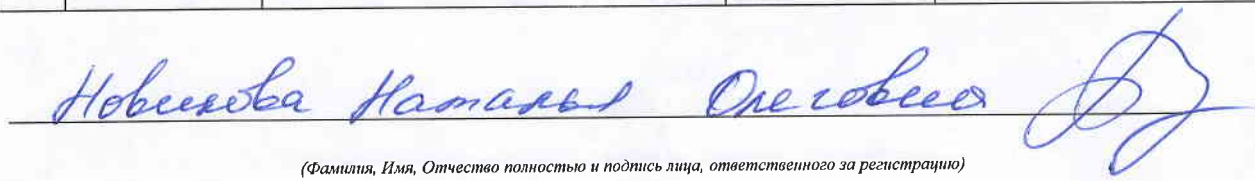 Новикова Наталья Олеговна
(Фамилия, Имя, Отчество полностью и подпись лица, ответственного за регистрацию)